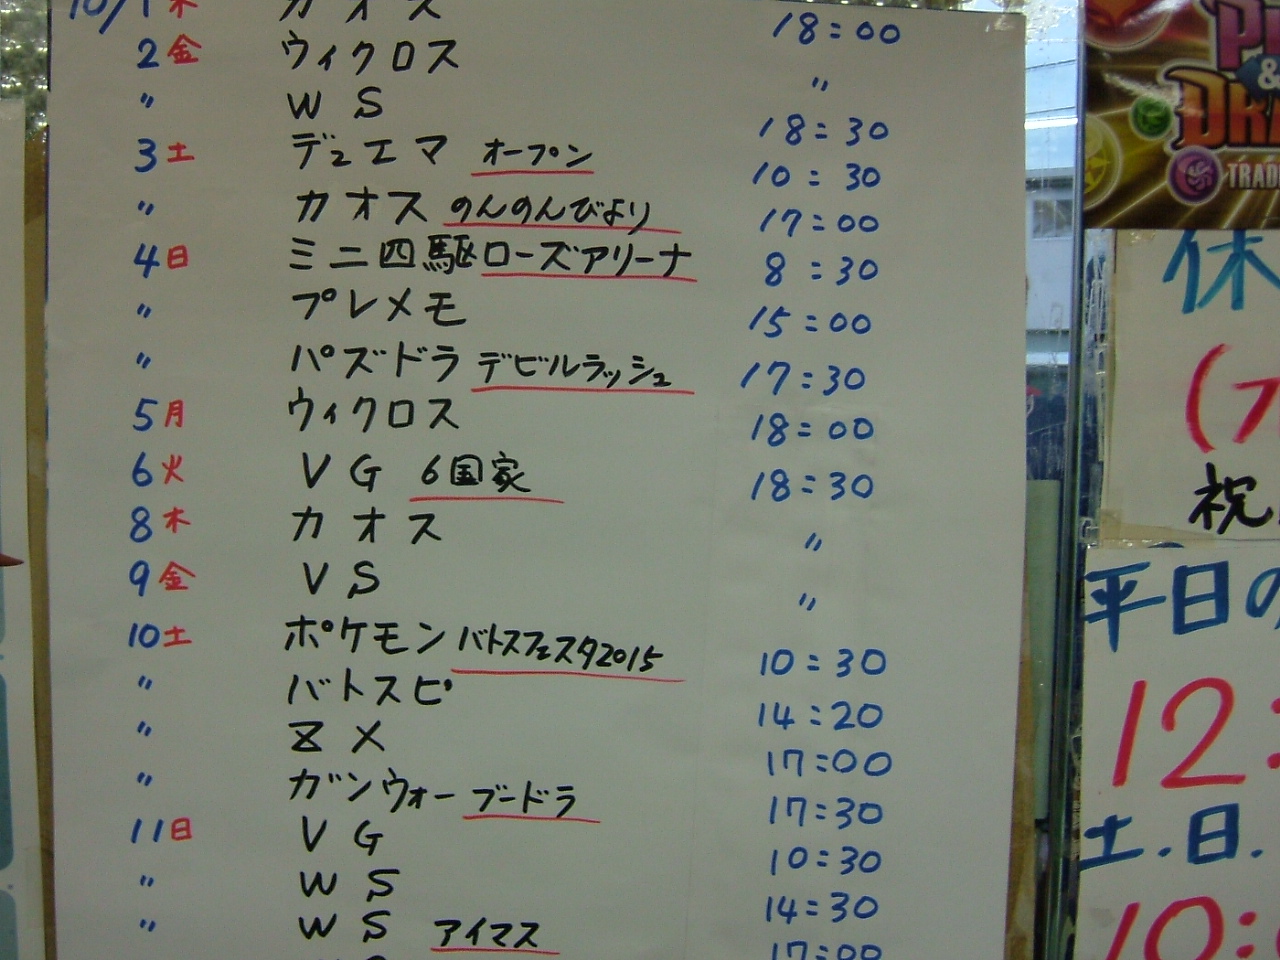 10/1 木 カオス 18:00
2 金 ウィクロス 〃
〃 WS 18:30
3 土 デュエマ オープン 10:30
〃 カオス のんのんびより 17:00
4 日 ミニ四駆 ローズアリーナ 8:30
〃 プレメモ 15:00
〃 パズドラ デビルラッシュ 17:30
5 月 ウィクロス 18:00
6 火 VG 6国家 18:30
8 木 カオス 〃
9 金 VS 〃
10 土 ポケモン バトスフェスタ2015 10:30
〃 バトスピ 14:20
〃 ZX 17:00
〃 ガンウォー ブードラ 17:30
11 日 VG 10:30
〃 WS 14:30
〃 WS アイマス 17:00
&
DRA
TRAD
休
祝
平日の
12:
土.日.
10: